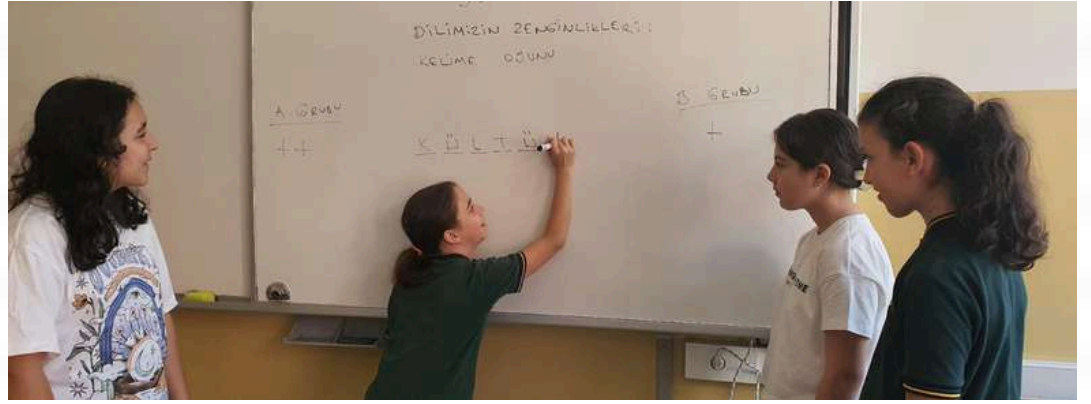 DİLİMİZİN ZENGİNLİKLERİ:
KELİME OYUNU
A GRUBU
++
B GRUBU
+
K Ü L T Ü